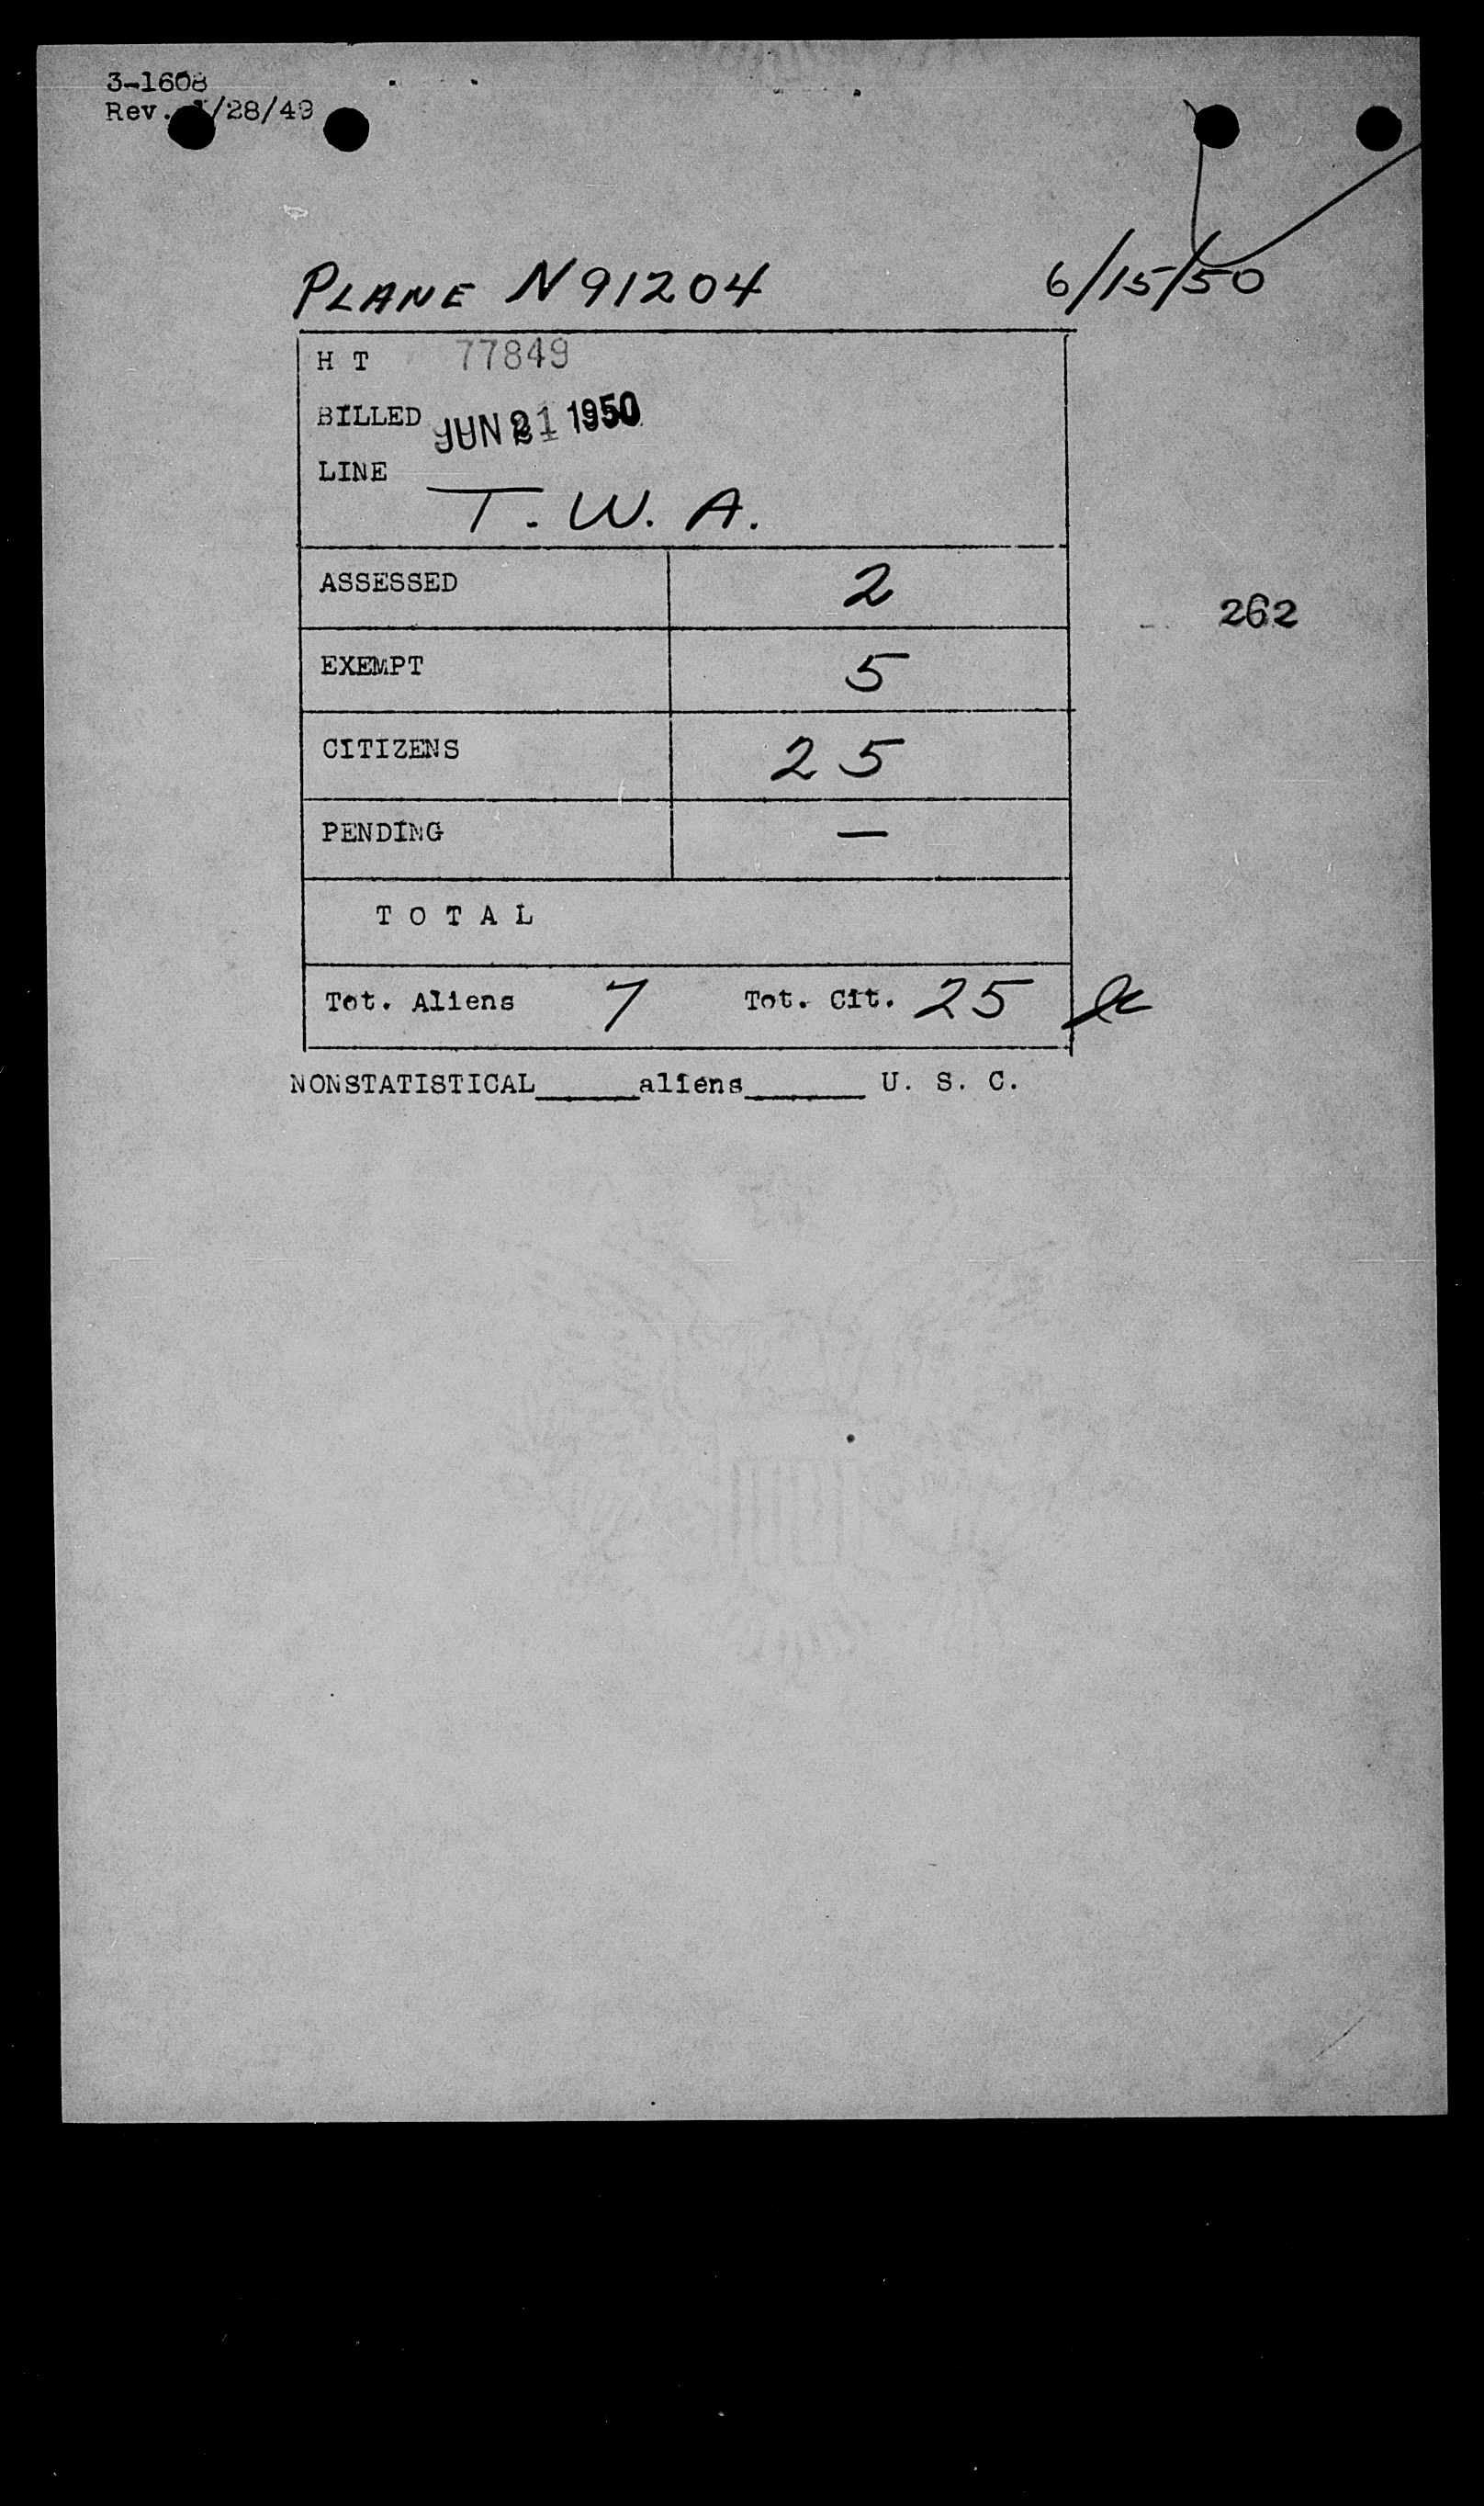 3-1608
Rev. /28/49
PLANE N91204 6/15/50
H T 77849
BILLED JUN 21 1950
LINE
T. W. A.
ASSESSED 2
262
EXEMPT 5
CITIZENS 25
PENDING —
T O T A L
Tot. Aliens 7 Tot. Cit. 25
NONSTATISTICAL_____aliens______ U. S. C.